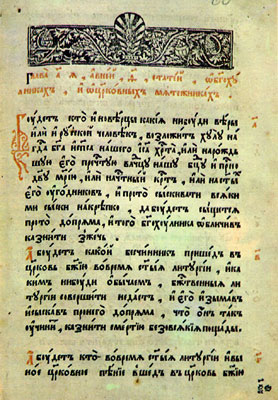 Глава а҃ я , авней , ѳ҃ , статей , ѡбг҃охꙋ
лникахъ , и ѡцр҃ковныхъ мѧтежникахъ
Бꙋдетъ кто иновѣрцы какиѧ нибꙋди вѣры
или и рꙋской человѣкъ , возложитъ хꙋлꙋ на
гд҃а бг҃а и сп҃са нашего і҃са хр҃та , или нарожд
шꙋю его прч҃тꙋю влчцꙋ нашꙋ бц҃ꙋ и прно
дв҃ꙋ мр҃ию , или начестный кр҃тъ , или наст҃ыхъ
его ꙋгодниковъ , и прото сыскивати всѧки
ми сыски накрепко , дабꙋдетъ сыщетсѧ
прото допрѧма , и того бг҃охꙋлника ѡбличив
казнити зжечь .
Абꙋдетъ какой бесчинникъ пришедъ в
церковь бж҃ию вовремѧ ст҃ыѧ литꙋргии , и ка
кимъ нибꙋди обычаем , бж҃ественныѧ ли
тꙋргии совершити недастъ , и его изымавъ
исыскавъ пронего допрѧма , что онъ такъ
ꙋчинит , казнити смертию безовсѧкиѧ пощады .
Абꙋдетъ кто вовремѧ ст҃ыѧ литꙋргии , ивы
ное церковное пѣние вшедъ въ црк҃овь бж҃ию